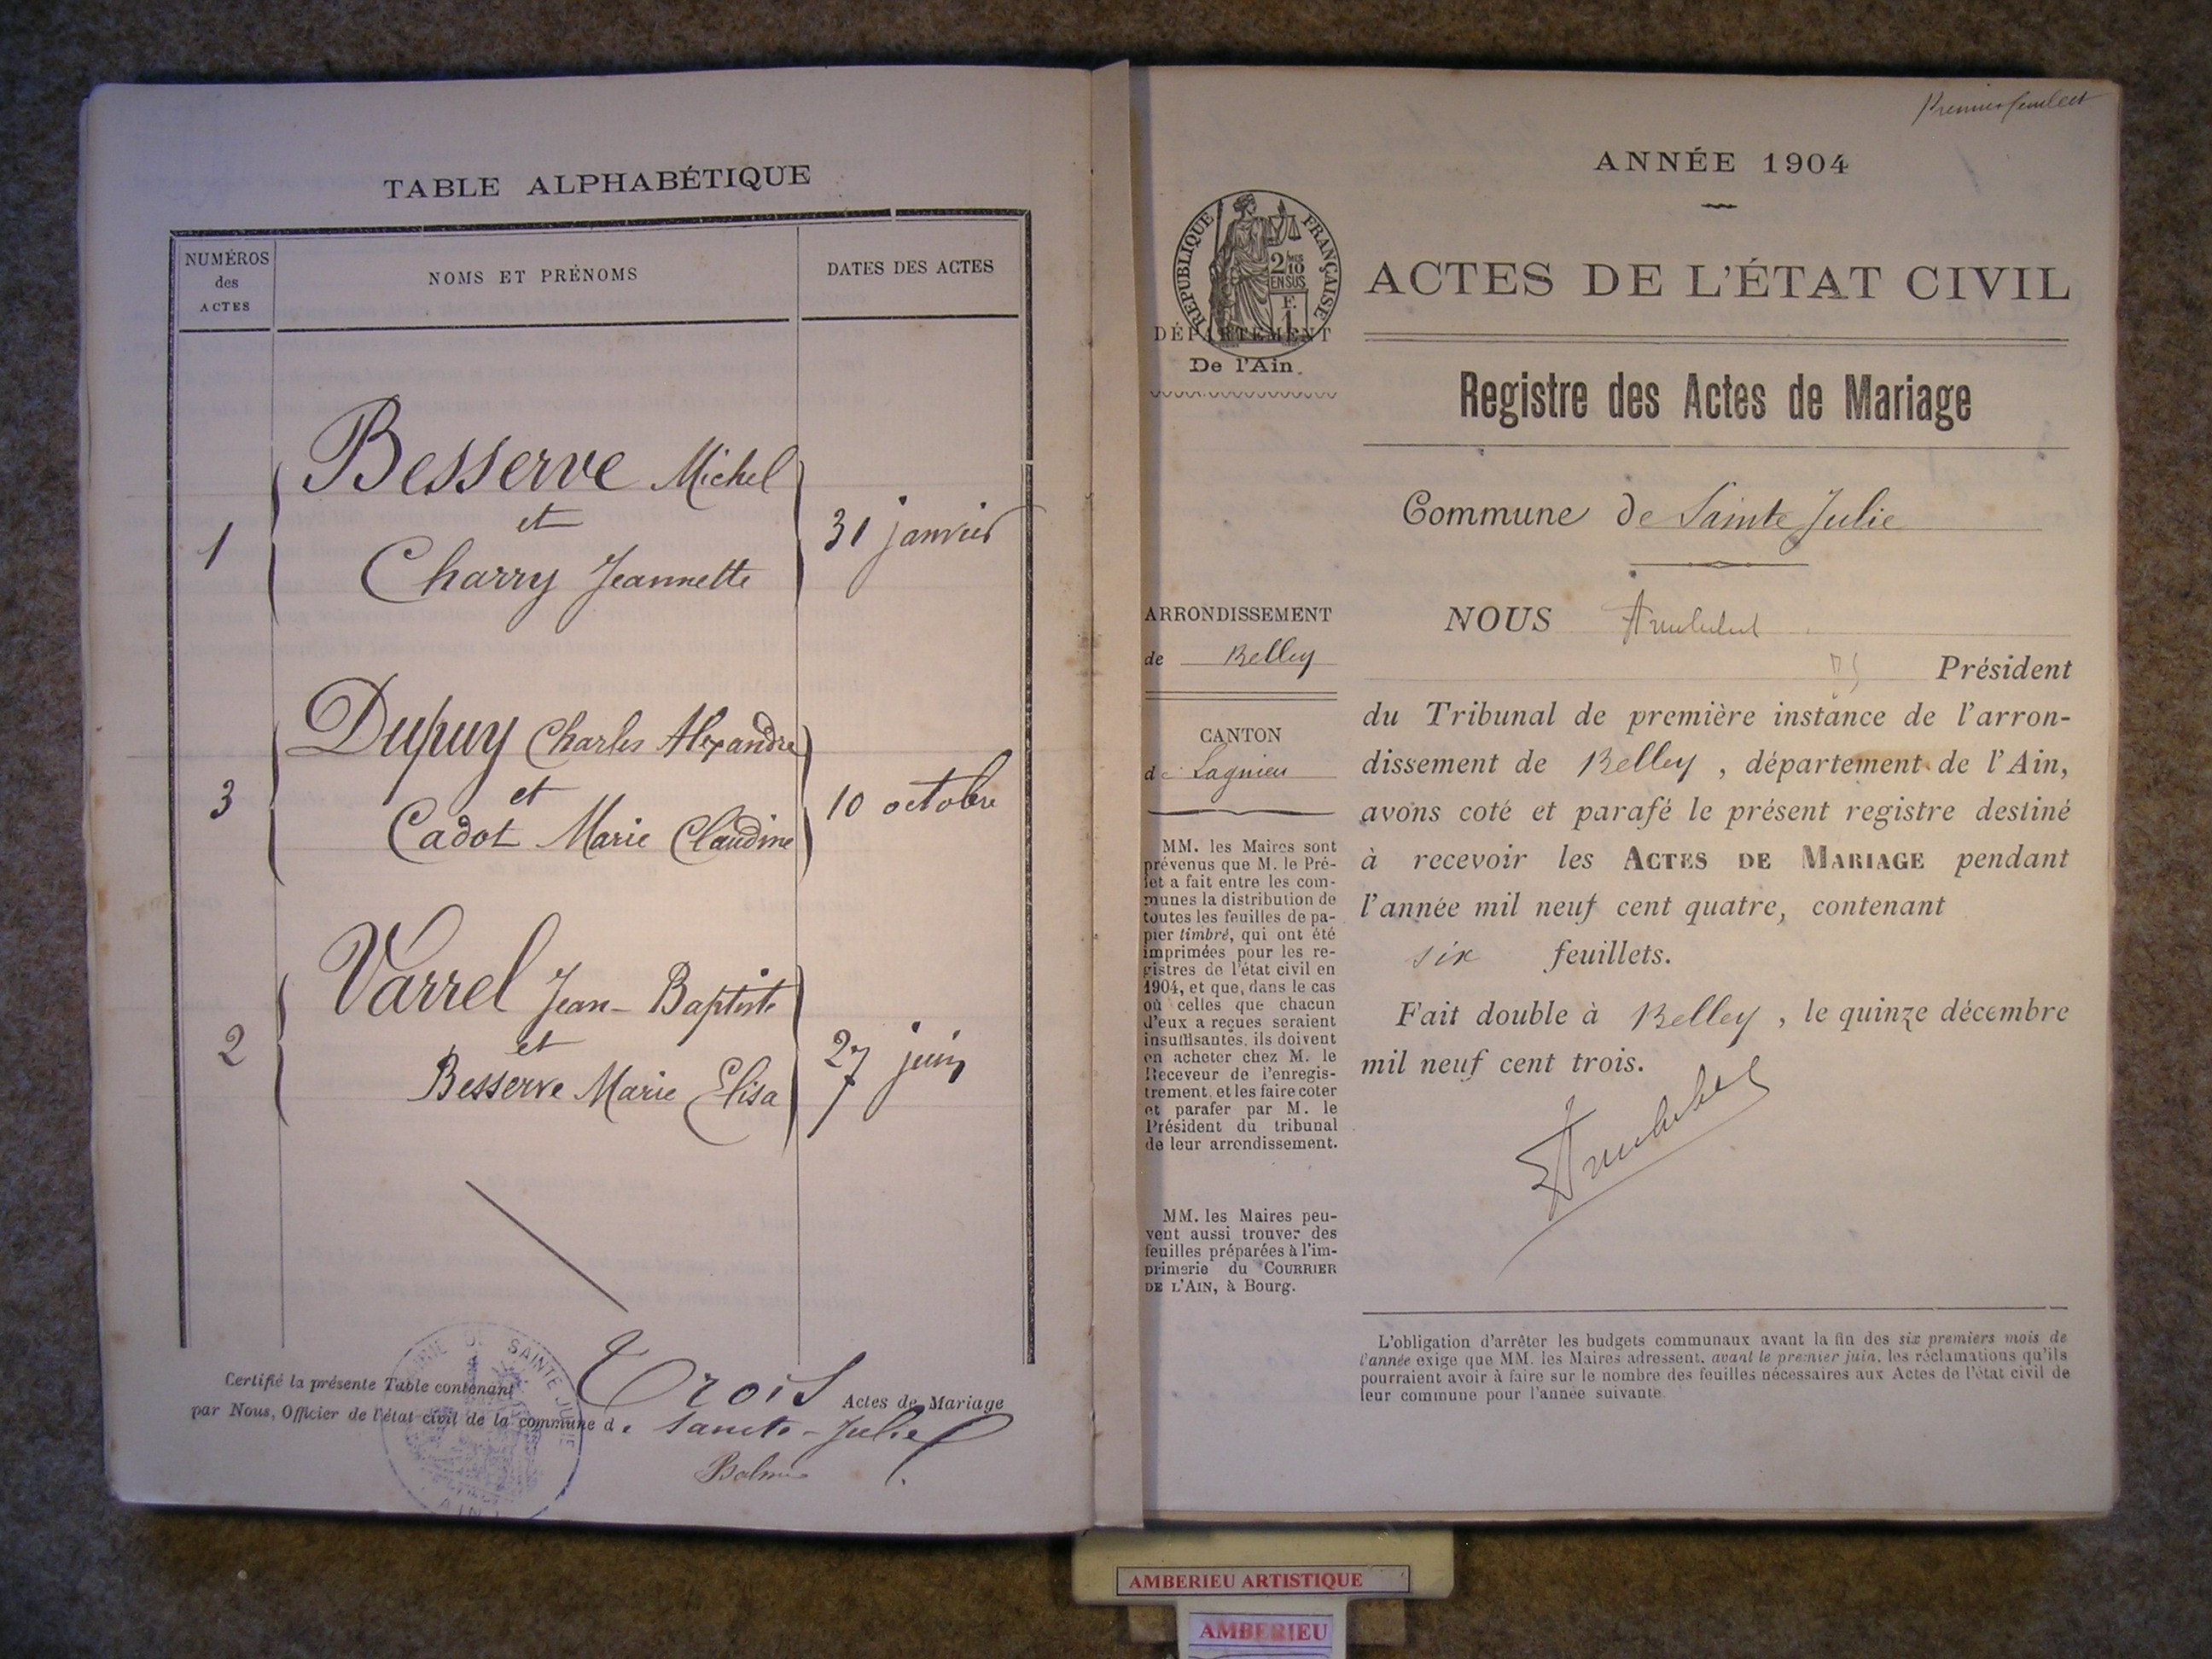 TABLE ALPHABÉTIQUE
NUMÉROS
des
ACTES
NOMS ET PRÉNOMS
DATES DES ACTES
Besserve Michel
et
1
31 janvier
Charry Jeannette
Dupuy Charles Alexandre
et
3
10 octobre
Cadot Marie Claudine
Varrel Jean-Baptiste
et
2
27 juin
Besserve Marie Elisa
Certifié la présente Table contenant Trois Actes de Mariage
par Nous, Officier de l'état civil de la commune de Sainte-Julie
MAIRIE DE SAINTE JULIE
AIN
Premier feuillet
ANNÉE 1904
RÉPUBLIQUE FRANÇAISE
2/10 MES
EN SUS
F.
1
DÉPARTEMENT
De l'Ain.
ACTES DE L'ÉTAT CIVIL
Registre des Actes de Mariage
Commune de Sainte Julie
ARRONDISSEMENT
de Belley
CANTON
de Lagnieu
MM. les Maires sont
prévenus que M. le Pré-
fet a fait entre les com-
munes la distribution de
toutes les feuilles de pa-
pier timbré, qui ont été
imprimées pour les re-
gistres de l'état civil en
1904, et que, dans le cas
où celles que chacun
d'eux a reçues seraient
insuffisantes, ils doivent
en acheter chez M. le
Receveur de l'enregis-
trement, et les faire coter
et parafer par M. le
Président du tribunal
de leur arrondissement.
MM. les Maires peu-
vent aussi trouver des
feuilles préparées à l'im-
primerie du COURRIER
DE L'AIN, à Bourg.
NOUS
Président
du Tribunal de première instance de l'arron-
dissement de Belley, département de l'Ain,
avons coté et parafé le présent registre destiné
à recevoir les ACTES DE MARIAGE pendant
l'année mil neuf cent quatre, contenant
six feuillets.
Fait double à Belley, le quinze décembre
mil neuf cent trois.
L'obligation d'arrêter les budgets communaux avant la fin des six premiers mois de
l'année exige que MM. les Maires adressent, avant le premier juin, les réclamations qu'ils
pourraient avoir à faire sur le nombre des feuilles nécessaires aux Actes de l'état civil de
leur commune pour l'année suivante.
AMBERIEU ARTISTIQUE
AMBERIEU